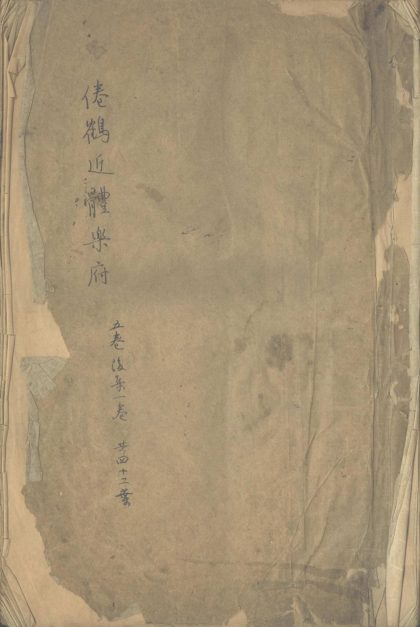 倦鶴近體樂府
五卷 後集一卷 共四十二葉